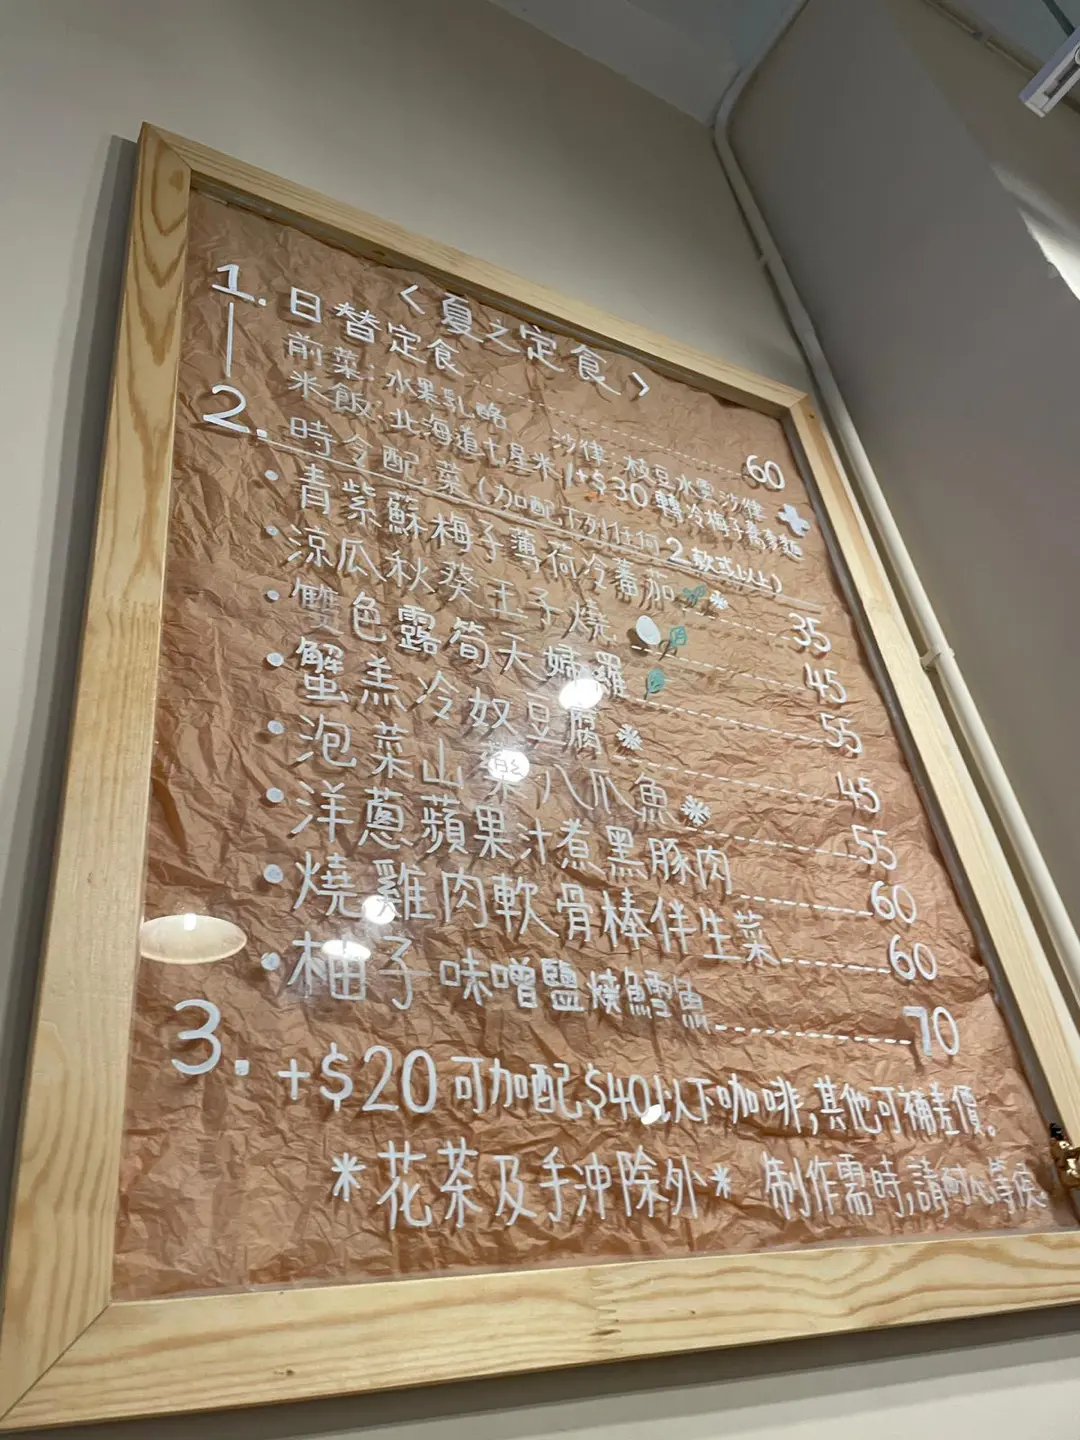 〈夏之定食〉
1. 日替定食 60
前菜:水果乳酪 沙律:枝豆水雲沙律
米飯:北海道七星米 / +$30轉冷梅子蕎麥麵
2. 時令配菜(加配下列任何2款或以上)
• 青紫蘇梅子薄荷冷蕃茄 35
• 涼瓜秋葵玉子燒 45
• 雙色露筍天婦羅 55
• 蟹羔冷奴豆腐 45
• 泡菜山葵八爪魚 55
• 洋蔥蘋果汁煮黑豚肉 60
• 燒雞肉軟骨棒伴生菜 60
• 柚子味噌鹽燒鱈魚 70
3. +$20可加配$40以下咖啡,其他可補差價。
*花茶及手沖除外* 制作需時,請耐心等候